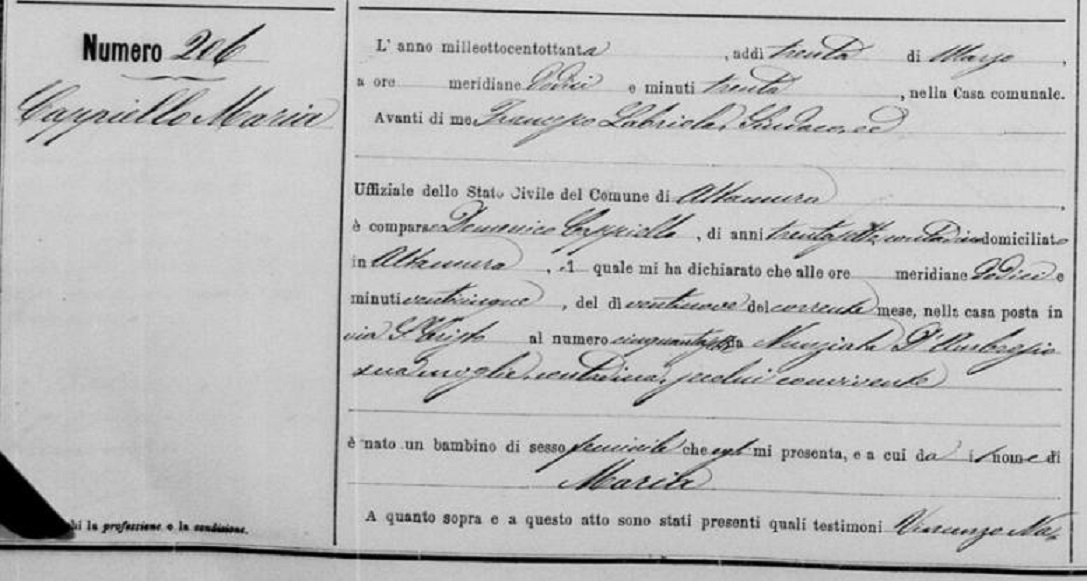 Numero 206
Cappiello Maria
L' anno milleottocentottanta, addì trenta di Marzo,
a ore meridiane dodici e minuti trenta, nella Casa comunale.
Avanti di me Labriola, Sindaco, ed
Uffiziale dello Stato Civile del Comune di Altamura
è comparso Domenico Cappiello, di anni contadino domiciliato
in Altamura, il quale mi ha dichiarato che alle ore meridiane dodici e
minuti venticinque, del dì ventinove del corrente mese, nella casa posta in
via al numero da Nunziata D'Ambrogio
sua moglie, contadina, convivente
è nato un bambino di sesso femminile che egli mi presenta, e a cui da il nome di
Maria
A quanto sopra e a questo atto sono stati presenti quali testimoni Vincenzo Na-
hi la professione o la condizione.